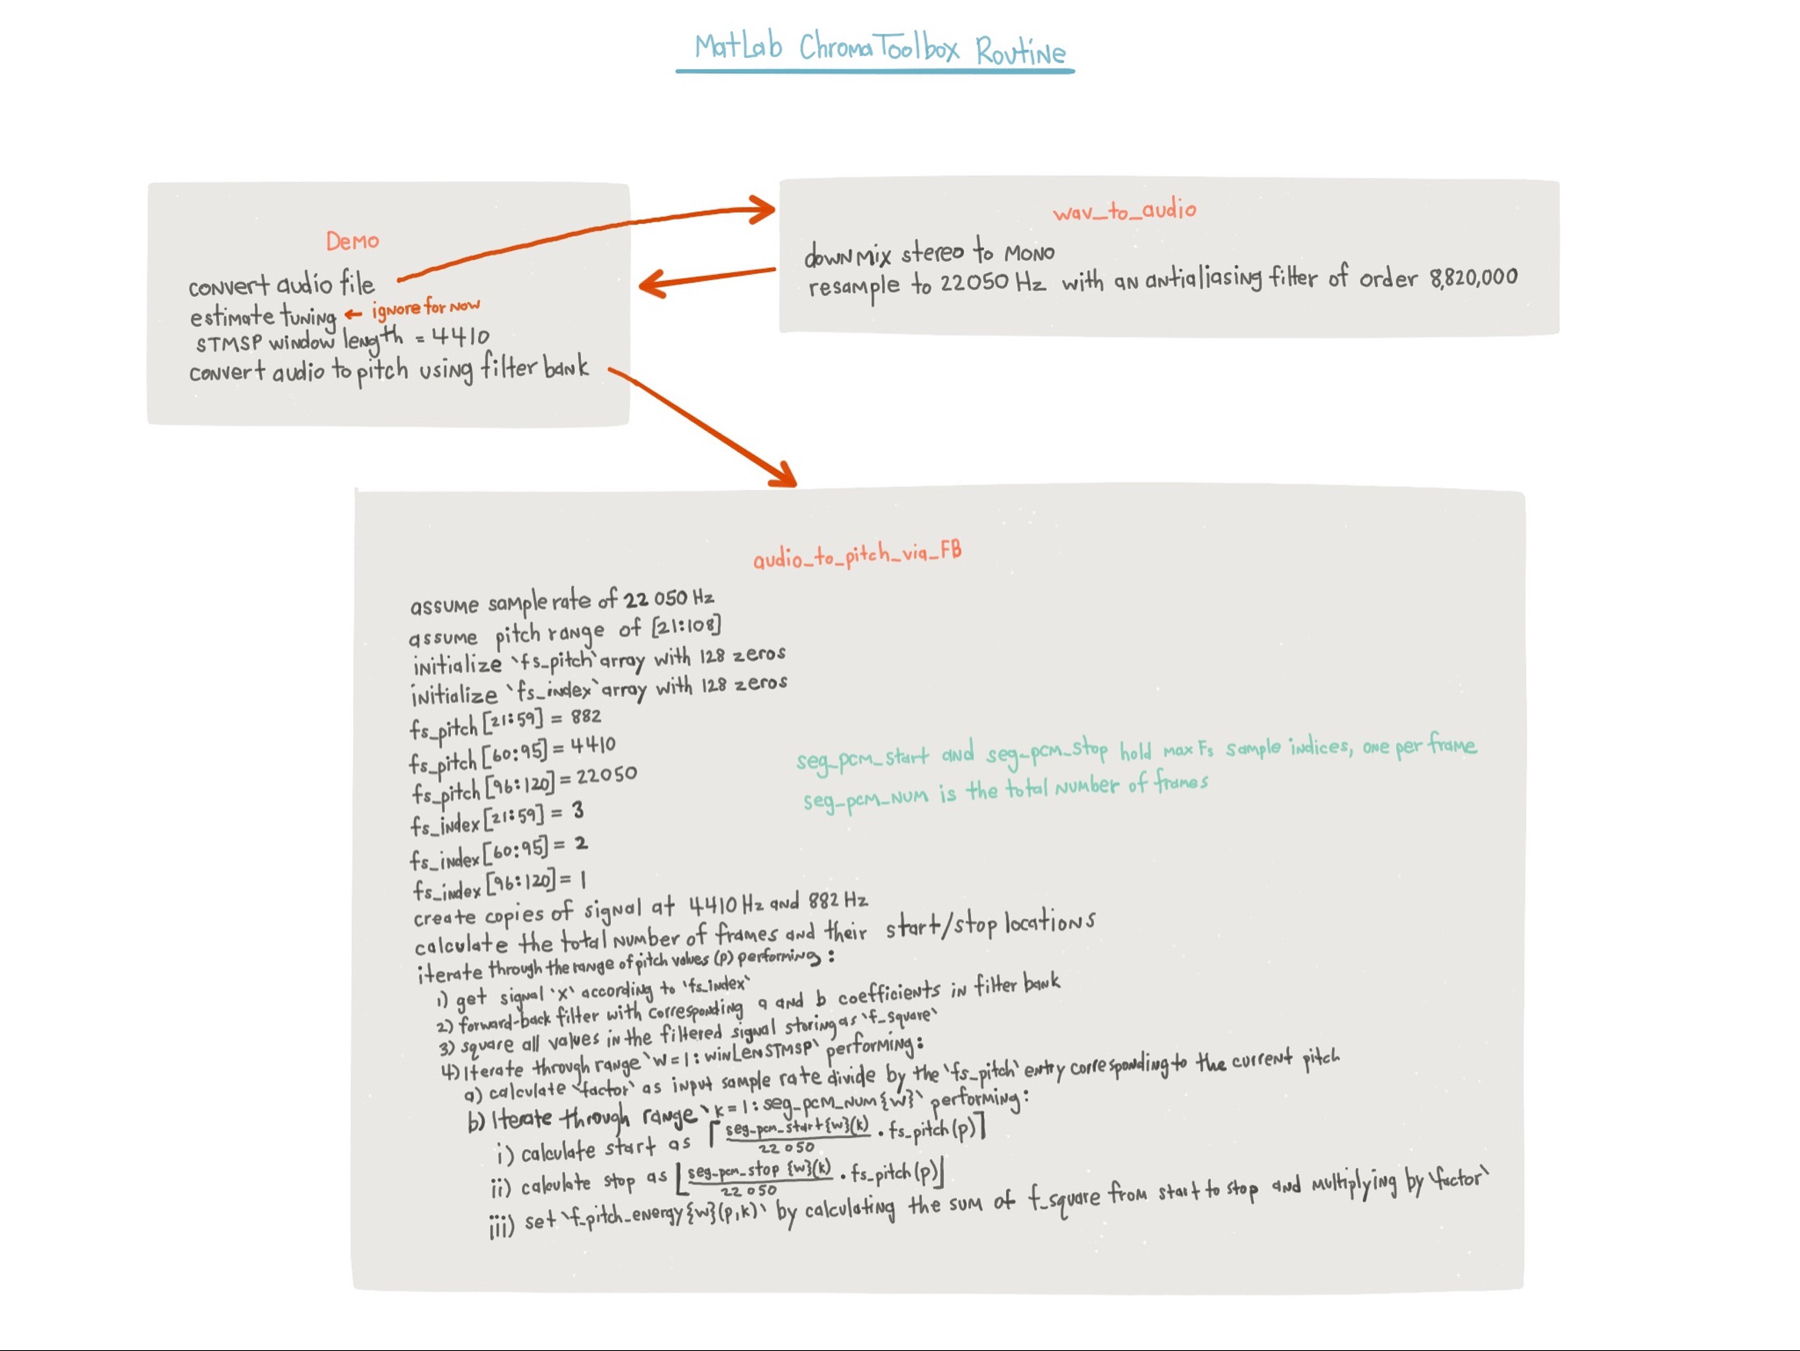 MatLab ChromaToolbox Routine
Demo
convert audio file
estimate tuning ← ignore for now
STMSP window length = 4410
convert audio to pitch using filter bank
wav_to_audio
downmix stereo to mono
resample to 22050 Hz with an antialiasing filter of order 8,820,000
audio_to_pitch_via_FB
assume sample rate of 22 050 Hz
assume pitch range of [21:108]
initialize `fs_pitch` array with 128 zeros
initialize `fs_index` array with 128 zeros
fs_pitch[21:59] = 882
fs_pitch[60:95] = 4410
fs_pitch[96:120] = 22050
fs_index[21:59] = 3
fs_index[60:95] = 2
fs_index[96:120] = 1
create copies of signal at 4410 Hz and 882 Hz
calculate the total number of frames and their start/stop locations
iterate through the range of pitch values (p) performing:
1) get signal `x` according to `fs_index`
2) forward-back filter with corresponding a and b coefficients in filter bank
3) square all values in the filtered signal storing as `f_square`
4) Iterate through range `w=1:winLenSTMSP` performing:
a) calculate `factor` as input sample rate divide by the `fs_pitch` entry corresponding to the current pitch
b) Iterate through range `k=1:seg_pcm_num{w}` performing:
i) calculate start as ⌈seg_pcm_start{w}(k) / 22050 · fs_pitch(p)⌉
ii) calculate stop as ⌊seg_pcm_stop{w}(k) / 22050 · fs_pitch(p)⌋
iii) set `f_pitch_energy{w}(p,k)` by calculating the sum of f_square from start to stop and multiplying by `factor`
seg_pcm_start and seg_pcm_stop hold max Fs sample indices, one per frame
seg_pcm_num is the total number of frames